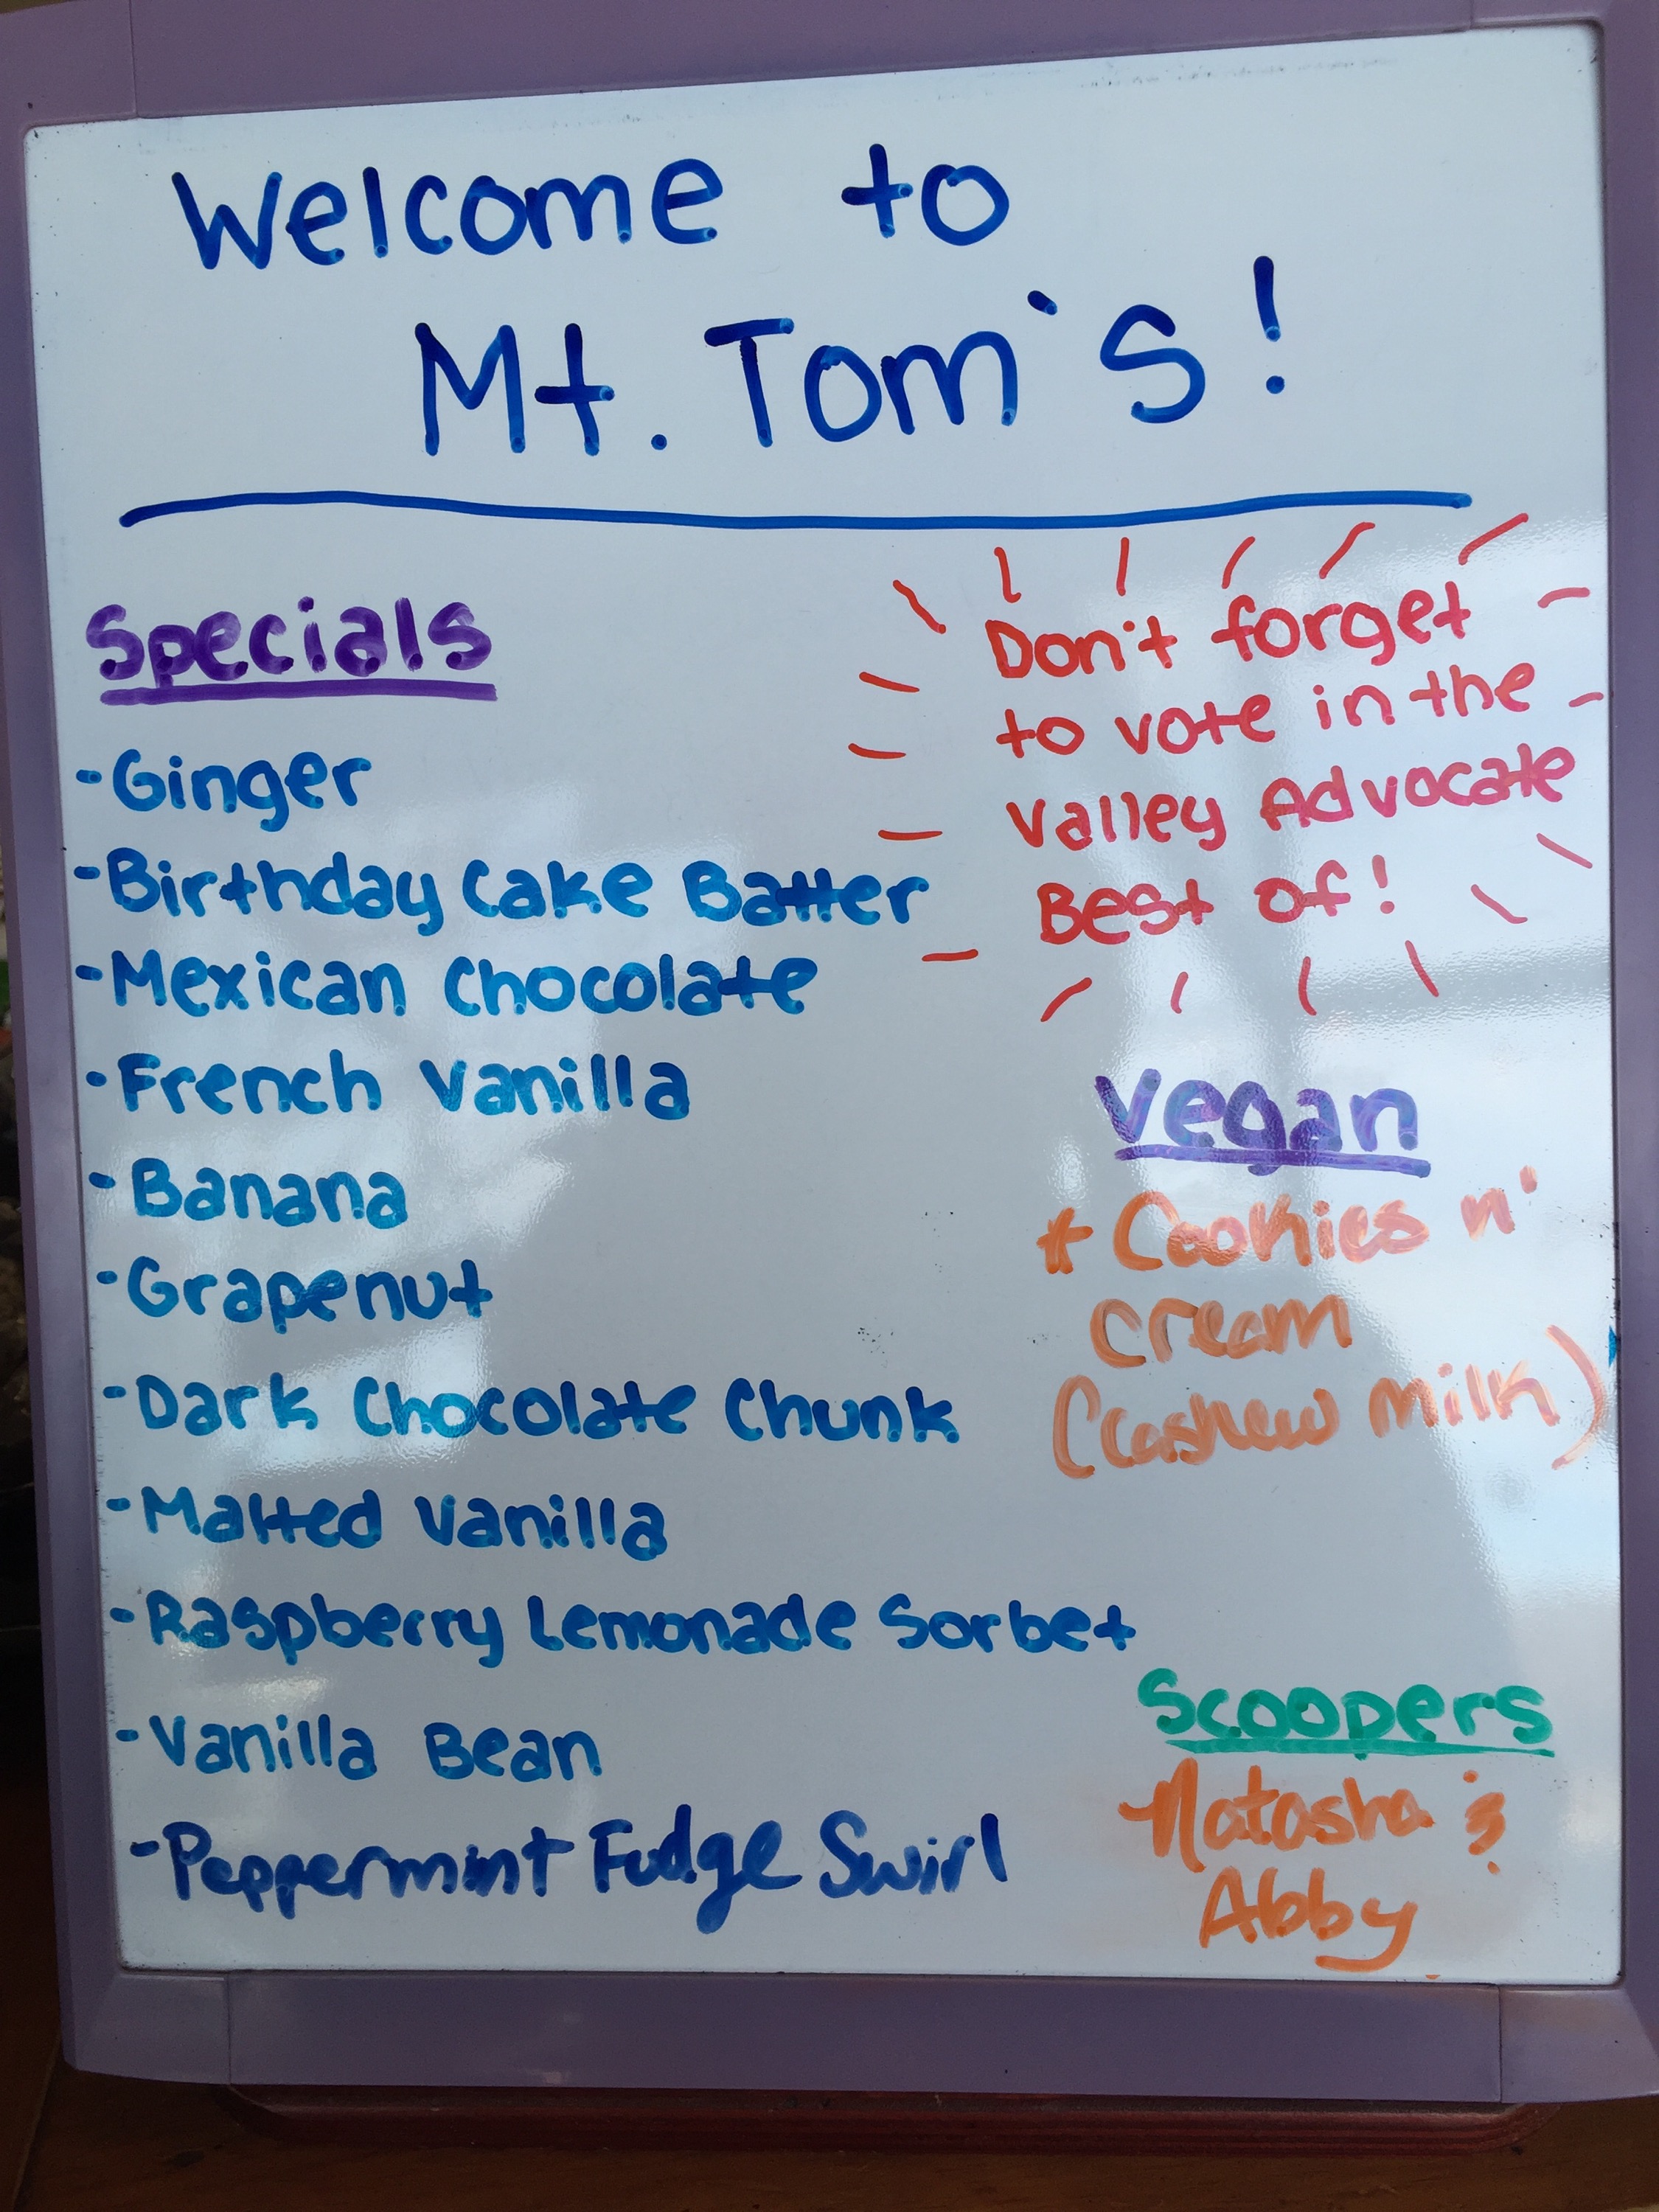 Welcome to
Mt. Tom's!
Specials
-Ginger
-Birthday Cake Batter
-Mexican Chocolate
-French Vanilla
-Banana
-Grapenut
-Dark Chocolate Chunk
-Malted Vanilla
-Raspberry Lemonade Sorbet
-Vanilla Bean
-Peppermint Fudge Swirl
Don't forget
to vote in the
Valley Advocate
Best of!
Vegan
* Cookies n'
cream
(cashew milk)
Scoopers
Natasha &
Abby